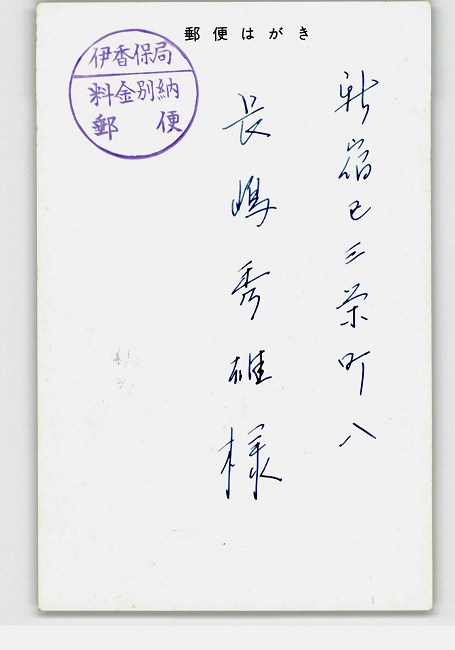 郵便はがき
伊香保局
料金別納
郵便
新宿区三栄町八
長嶋秀雄様